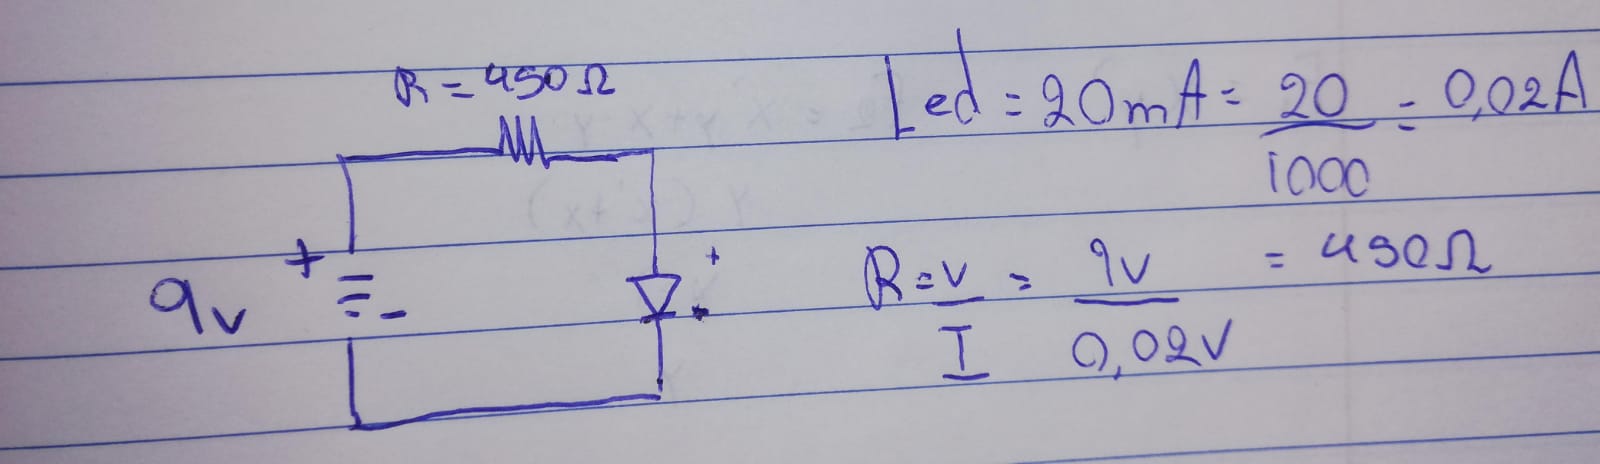 R = 450Ω
Led = 20mA = 20/1000 = 0,02A
+
9v
-
+
-
R = V/I = 9v/0,02V = 450Ω